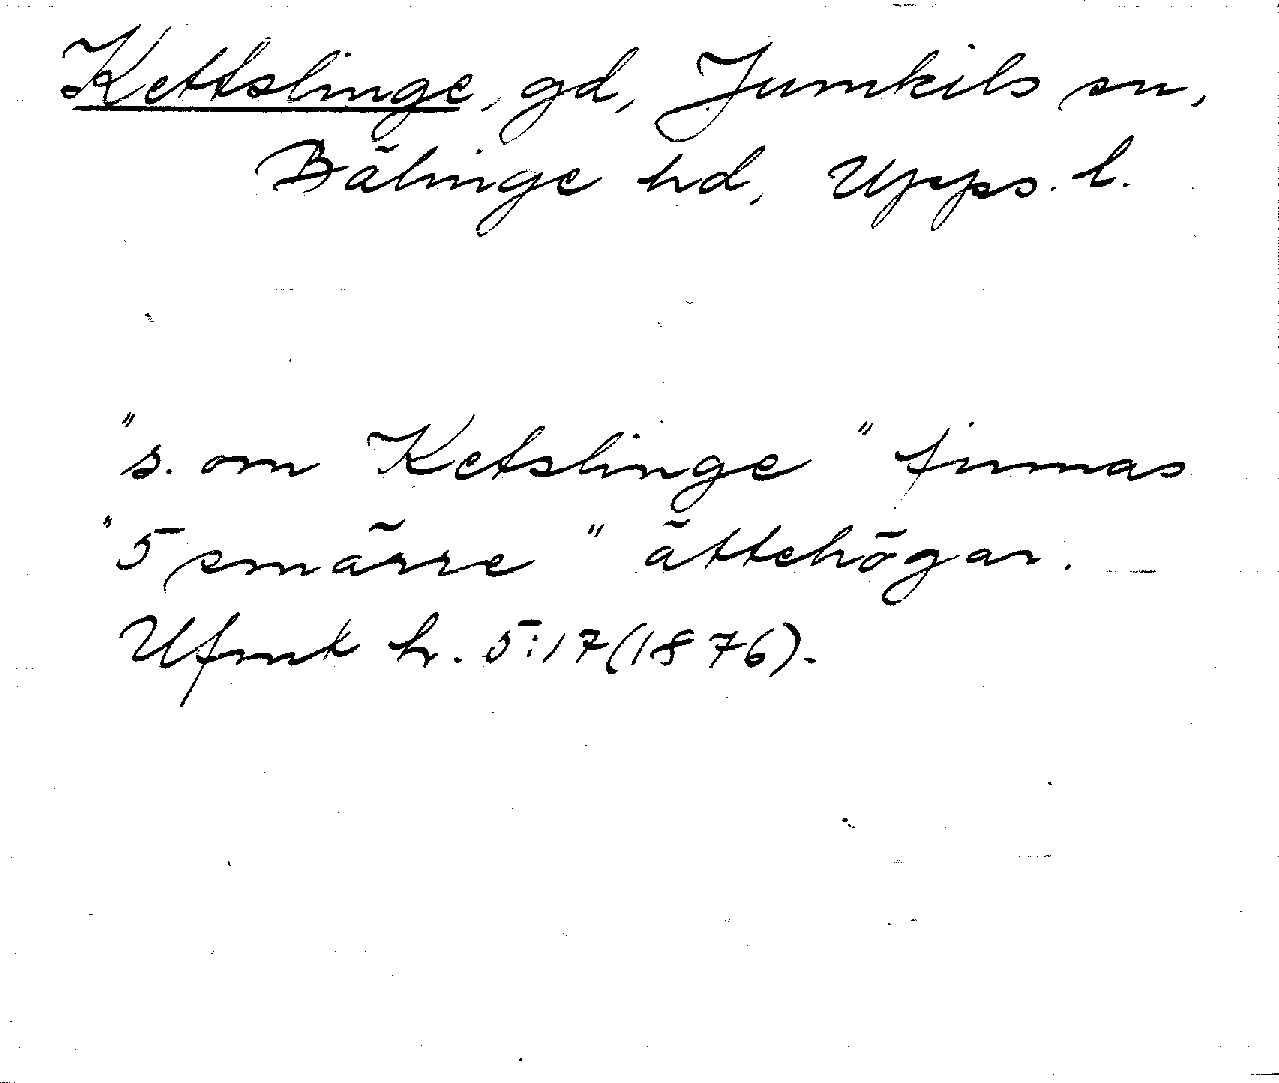 Kettslinge, gd, Jumkils sn,
Bälinge hd, Upps. l.
"s. om Ketslinge" finnas
"5 smärre" ättehögar.
Ufmt h. 5:17(1876).